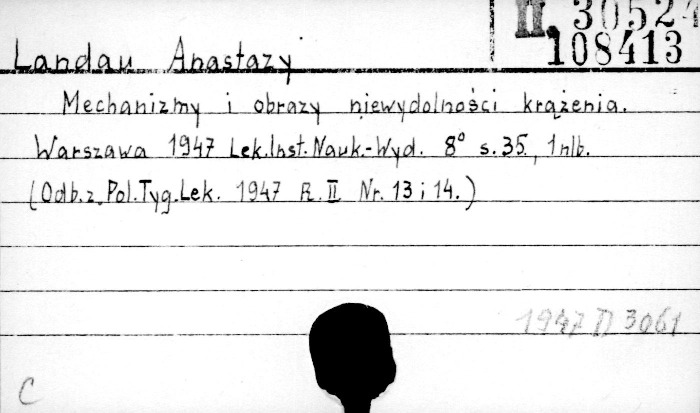 II. 30524
108413
Landau Anastazy
Mechanizmy i obrazy niewydolności krążenia.
Warszawa 1947 Lek.Inst.Nauk.-Wyd. 8° s.35, 1 nlb.
(Odb.z.Pol.Tyg.Lek. 1947 R. II Nr. 13 i 14.)
1947 D 3061
C